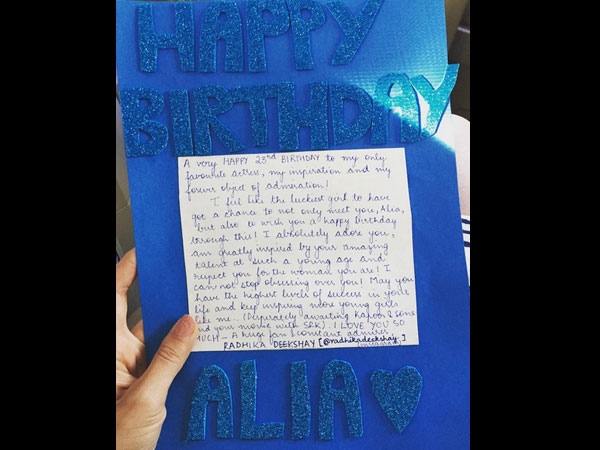 HAPPY
BIRTHDAY
A very HAPPY 23rd BIRTHDAY to my only
favourite actress, my inspiration and my
forever object of admiration!
I feel like the luckiest girl to have
got a chance to not only meet you, Alia,
but also to wish you a happy birthday
through this! I absolutely adore you,
am greatly inspired by your amazing
talent at such a young age and
respect you for the woman you are! I
can not stop obsessing over you! May you
have the highest levels of success in your
life and keep inspiring more young girls
like me... (Desperately awaiting Kapoor & Sons
and your movie with SRK). I LOVE YOU SO
MUCH - A huge fan & constant admirer
RADHIKA DEEKSHAY [@radhikadeekshay]
(instagram)
ALIA